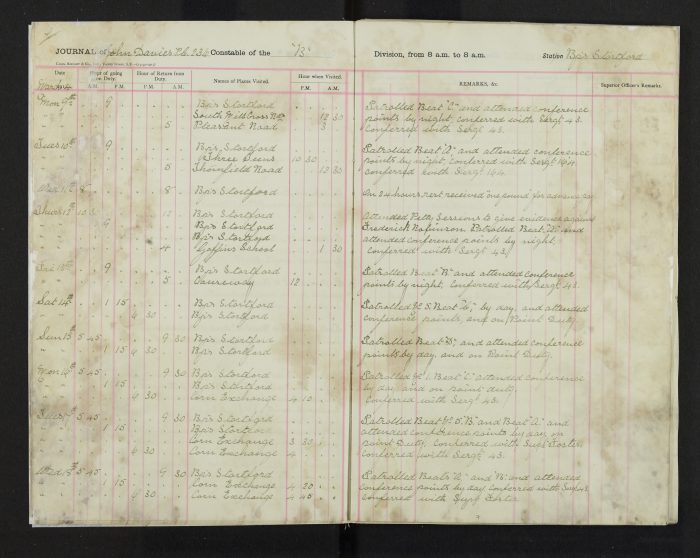 JOURNAL of John Davies P.C. 234 Constable of the "B" Division, from 8 a.m. to 8 a.m. Station Bp's Stortford
Date Hour of going on Duty. Hour of Return from Duty. Names of Places Visited. Hour when Visited. REMARKS, &c. Superior Officer's Remarks.
A.M. P.M. P.M. A.M. P.M. A.M.
Mon 9th 9 Bp's Stortford Patrolled Beat "C" and attended conference
South Mill Cross 12 30 points by night, conferred with Sergt 43.
5 Pleasant Road 3 Conferred with Sergt 43.
Tues 10th 9 Bp's Stortford Patrolled Beat and attended conference
10 30 points by night, conferred with Sergt 164
5 Thornfield Road 12 30 conferred with Sergt 164
Wed 11th 8 8 Bp's Stortford On 24 hours rest received one pound for advance
Thurs 12th 10 12 Bp's Stortford Attended Petty Sessions to give evidence against
9 Bp's Stortford Frederick Robinson. Patrolled Beat and
Bp's Stortford attended conference points by night,
4 School 1 30 Conferred with Sergt 43.
Fri 13th 9 Bp's Stortford Patrolled Beat and attended conference
5 Causeway 12 points by night, Conferred with Sergt 43.
Sat 14th 1 15 Bp's Stortford Patrolled Beat by day, and attended
4 30 Bp's Stortford conference points, and on Point Duty.
Sun 15th 5 45 9 30 Bp's Stortford Patrolled Beat and attended conference
1 15 4 30 Bp's Stortford points by day, and on Point Duty.
Mon 16th 5 45 9 30 Bp's Stortford Patrolled Beat attended conference
1 15 Bp's Stortford by day, and on point duty.
4 30 Corn Exchange 4 10 Conferred with Sergt 43.
Tues 17th 5 45 9 30 Bp's Stortford Patrolled Beat and Beat and
1 15 Bp's Stortford attended conference points by day, on
Corn Exchange 3 30 point Duty, Conferred with Supt Foster
4 30 Corn Exchange 4 Conferred with Sergt 43.
Wed 18th 5 45 9 30 Bp's Stortford Patrolled Beats and and attended
1 15 Corn Exchange 4 20 conference points by day conferred with Sergt 43
4 30 Corn Exchange 4 45 conferred with Supt Foster